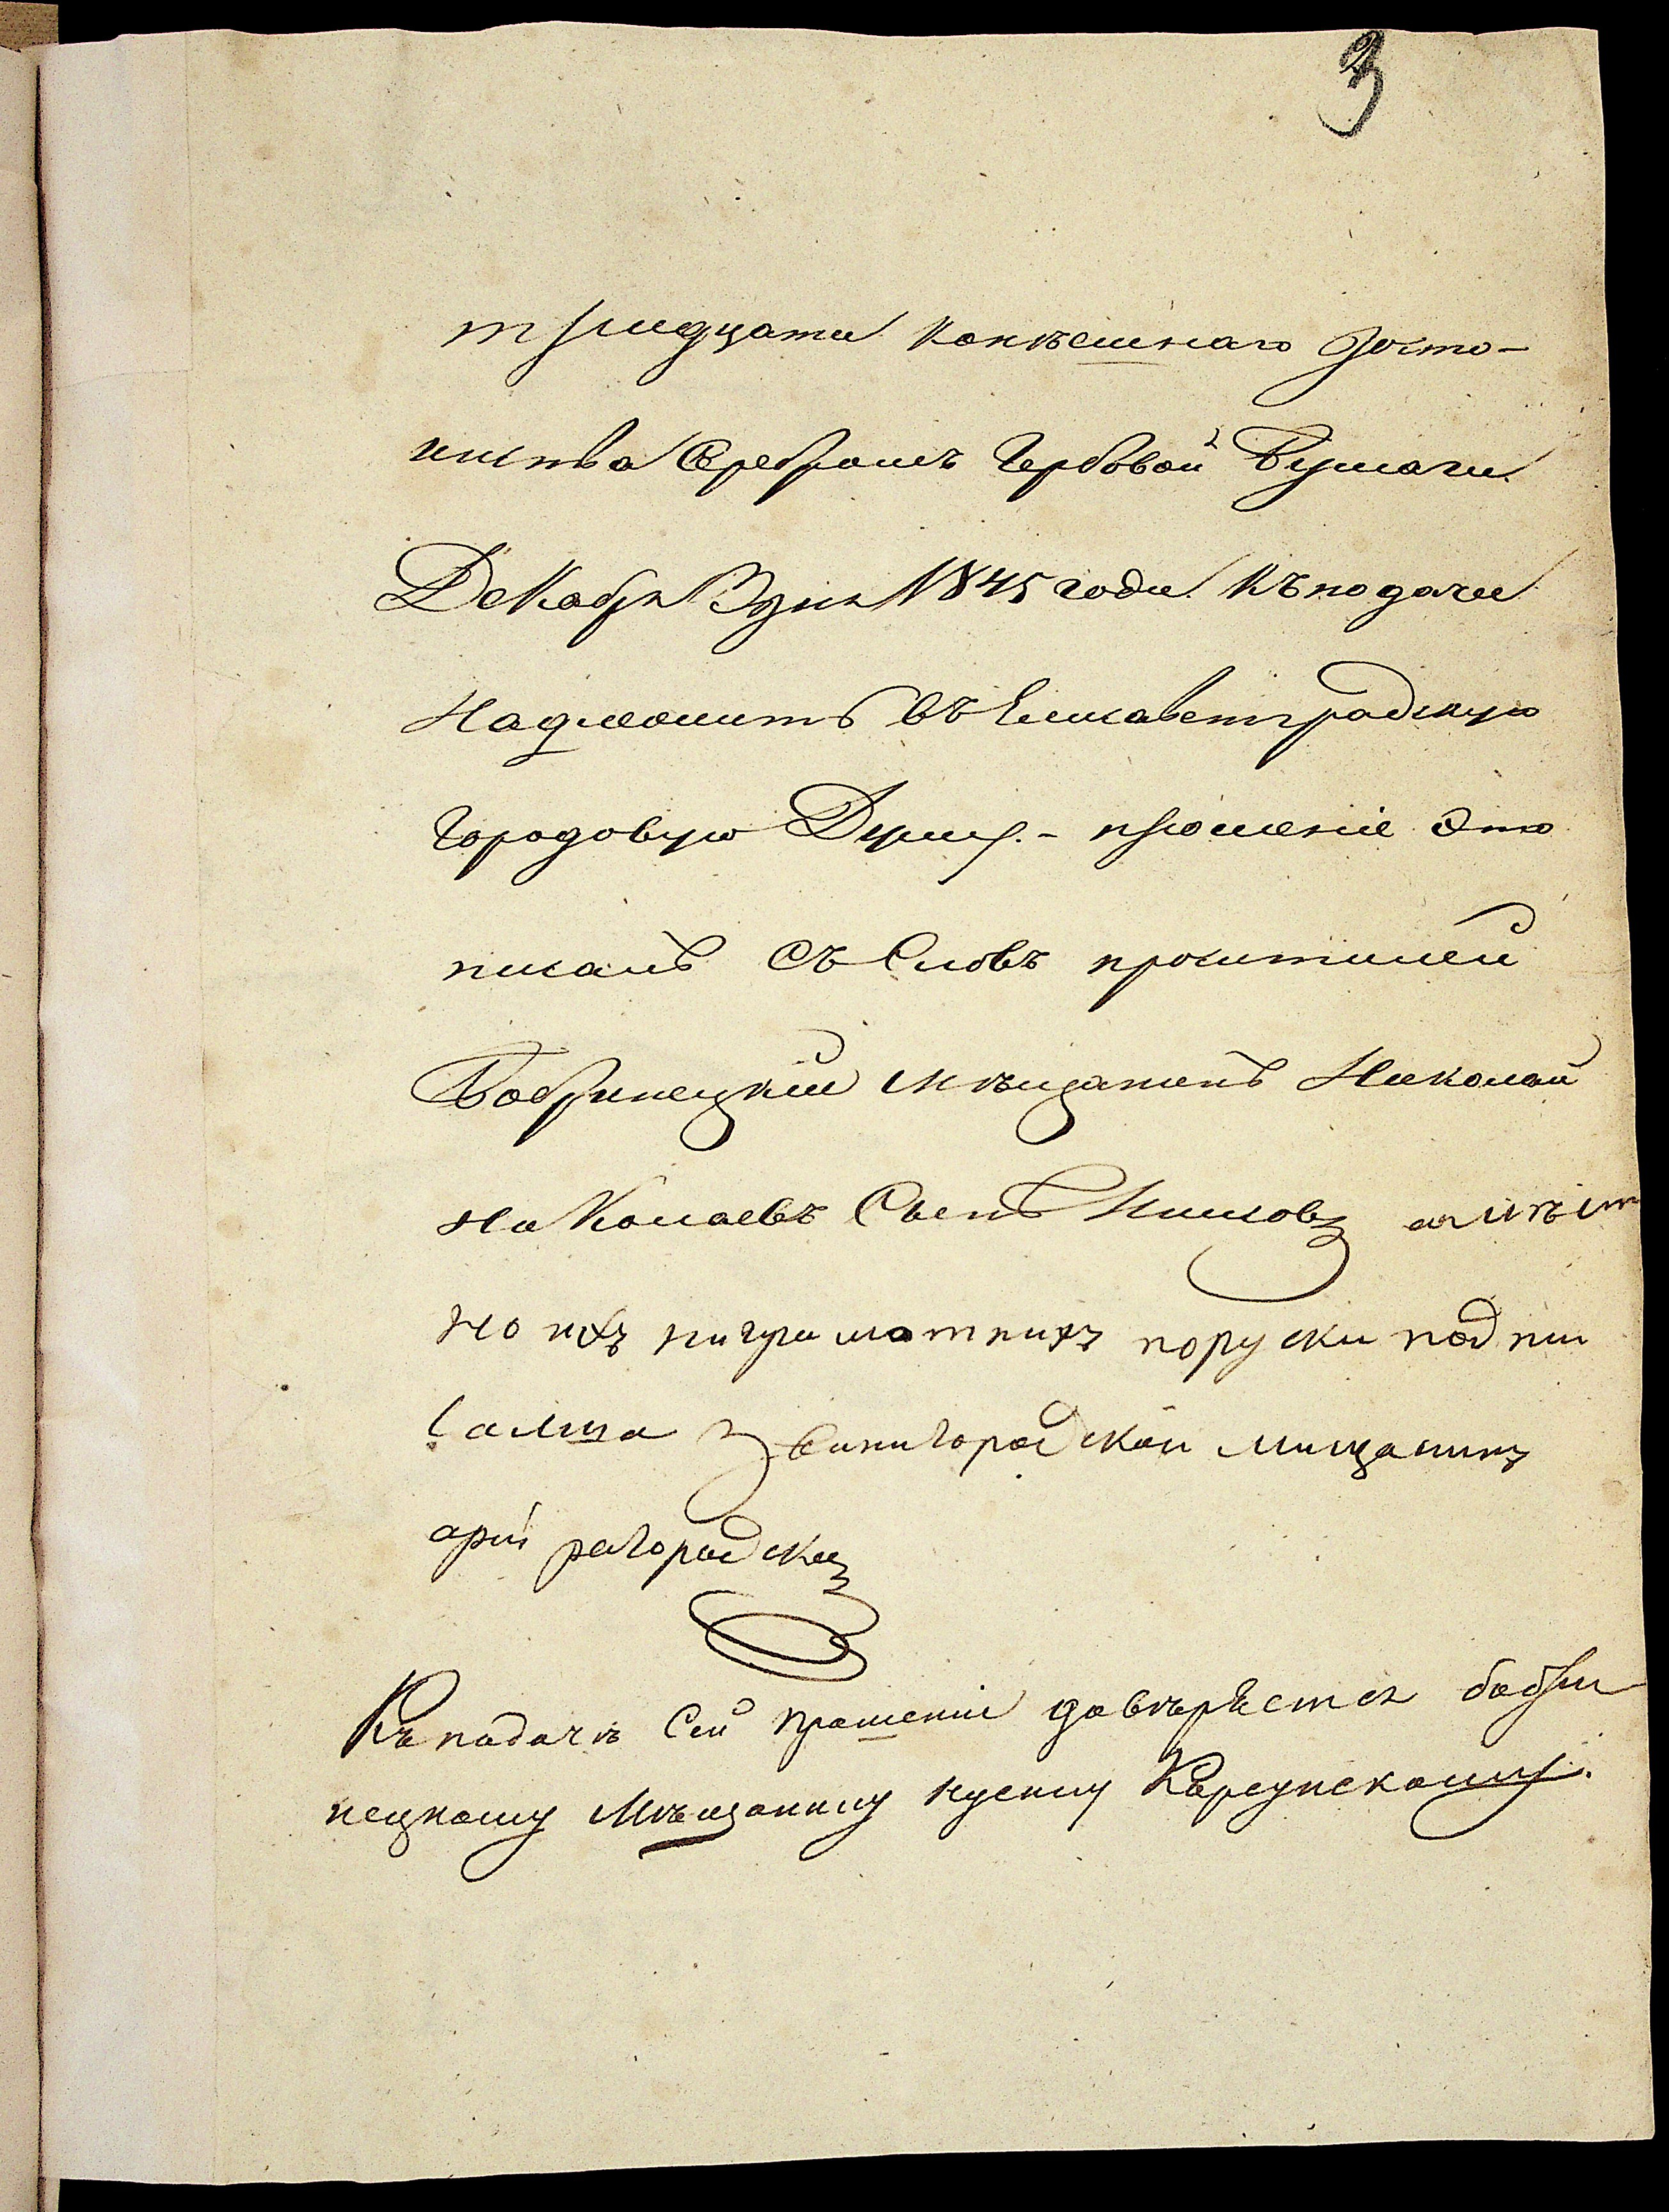 3
тридцати копѣешнаго досто-
инства серебромъ Гербовой Бумаги
Декабря 3 дня 1845 года Къ подачи
надлежитъ въ Елисаветградскую
Городовую Думу. - прошеніе это
писалъ съ Словъ просителей
Бобринецкій мѣщаненъ Николай
Николаевъ Сынъ Климовъ а вмѣст
но ихъ ниграмотнихъ поруски подпи
салца Звинигородской мищанинъ
арій рагородскъ
Къ подачѣ Сей прошеніи довѣряется бобри
нецкому мѣщанину нусину Корсунскому.